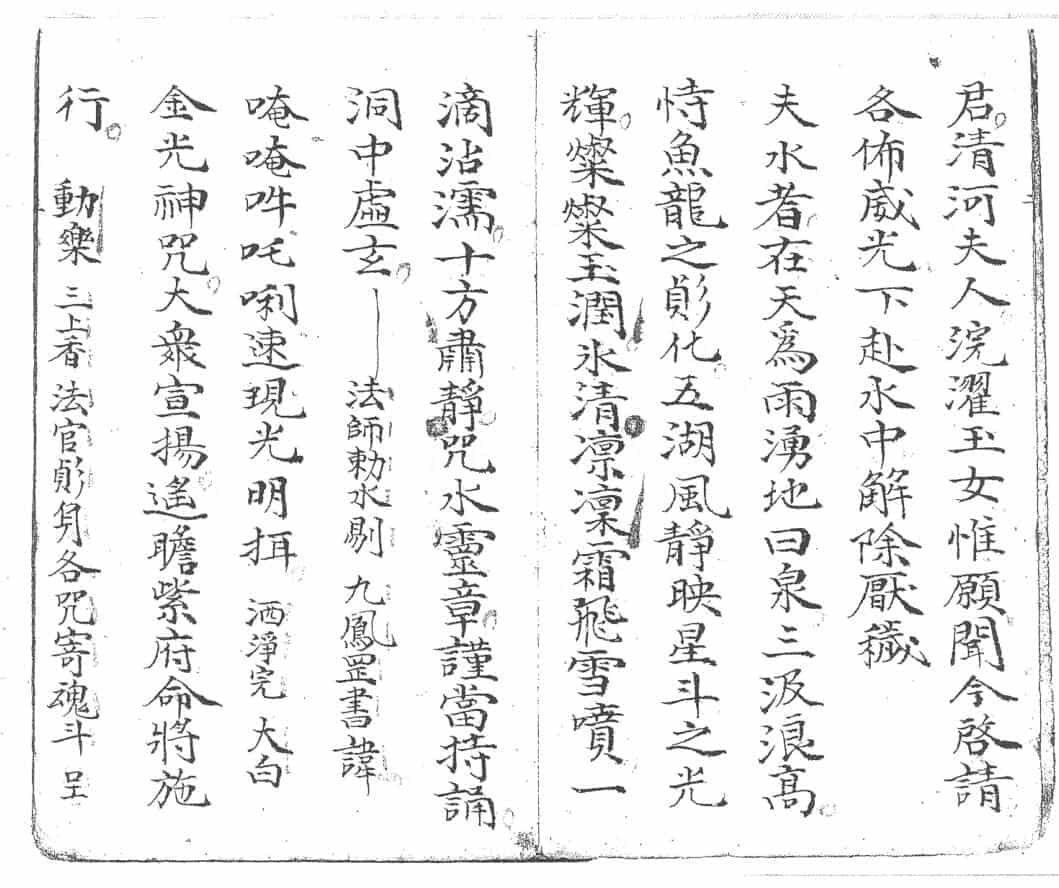 君清河夫人浣濯玉女惟願聞今啓請
各佈威光下赴水中解除厭穢
夫水者在天爲雨湧地曰泉三汲浪高
恃魚龍之化五湖風靜映星斗之光
輝燦燦玉潤氷清凛凛霜飛雪噴一
滴沾濡十方肅靜咒水靈章謹當持誦
洞中虛玄 法師勅水剔 九鳳罡書諱
唵唵吽吒唎速現光明挕 洒淨完 大白
金光神咒大衆宣揚遙瞻紫府命將施
行 動樂 三上香 法官各咒寄魂斗呈